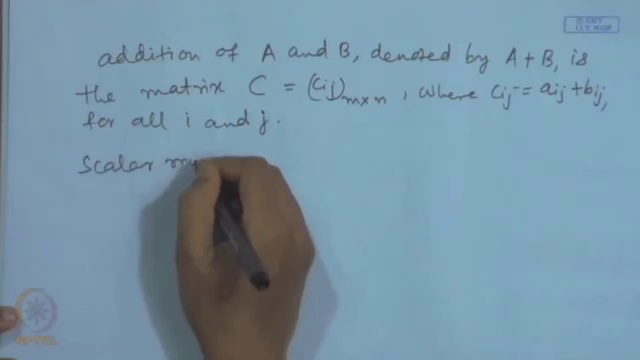 © CET
I.I.T. KGP
addition of A and B, denoted by A + B, is
the matrix C = (cij)m×n, where cij = aij + bij,
for all i and j.
Scalar mu
NPTEL